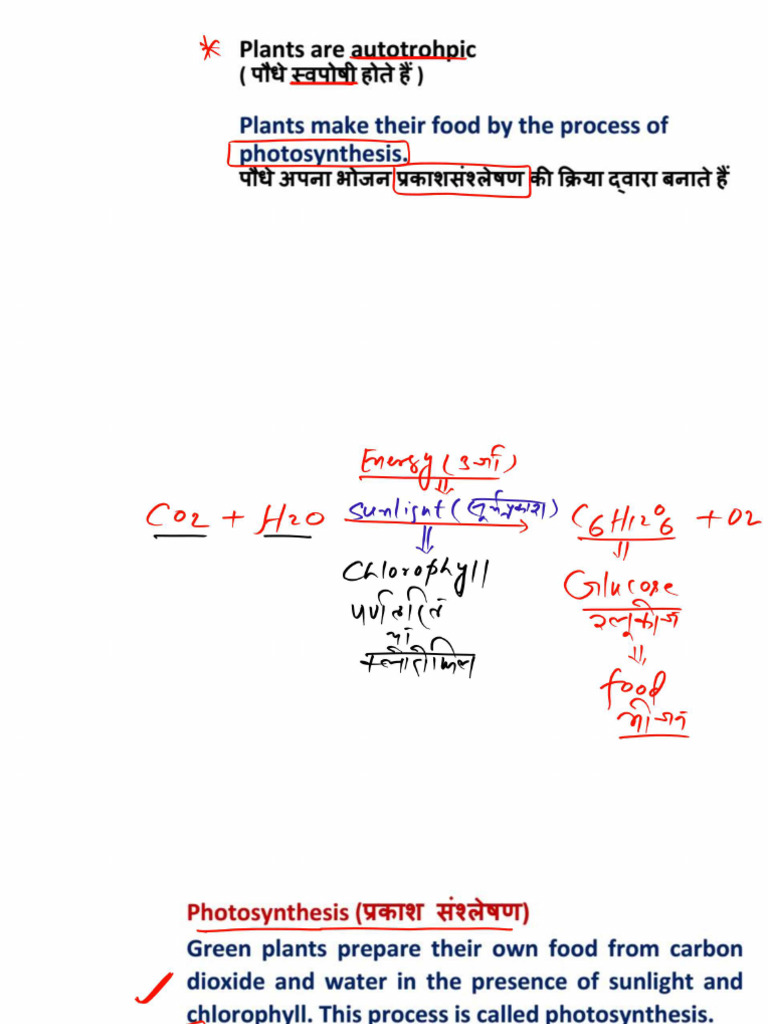 * Plants are autotrohpic
( पौधे स्वपोषी होते हैं )
Plants make their food by the process of
photosynthesis.
पौधे अपना भोजन प्रकाशसंश्लेषण की क्रिया द्वारा बनाते हैं
Energy (उर्जा)
CO2 + H2O Sunlight (सूर्यप्रकाश) C6H12O6 + O2
Chlorophyll
पर्णहरित
या
क्लोरोफिल
Glucose
ग्लूकोज
food
भोजन
Photosynthesis (प्रकाश संश्लेषण)
Green plants prepare their own food from carbon
dioxide and water in the presence of sunlight and
chlorophyll. This process is called photosynthesis.